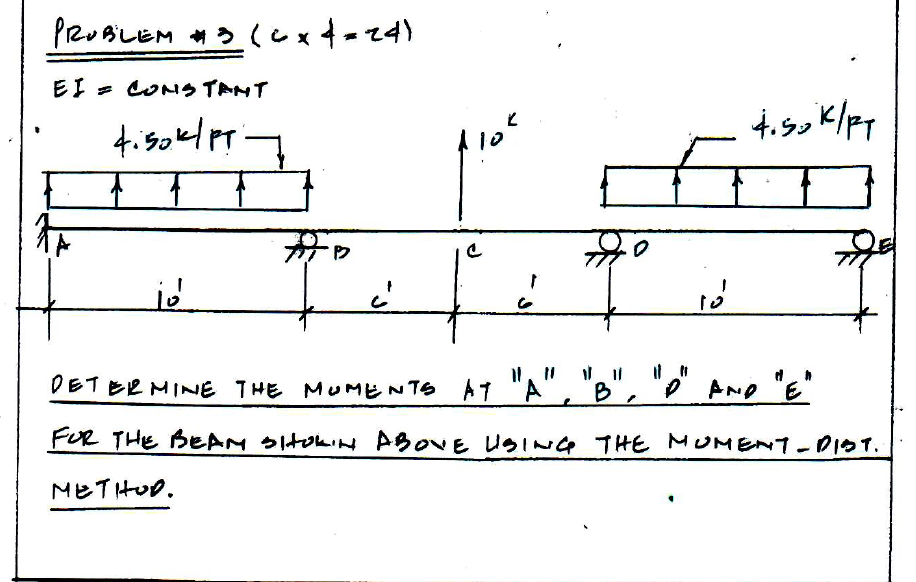 PROBLEM #3 (6 x 4 = 24)
EI = CONSTANT
4.50 K/FT
10 K
4.50 K/FT
A
B
C
D
E
10'
6'
6'
10'
DETERMINE THE MOMENTS AT "A", "B", "D" AND "E"
FOR THE BEAM SHOWN ABOVE USING THE MOMENT-DIST.
METHOD.